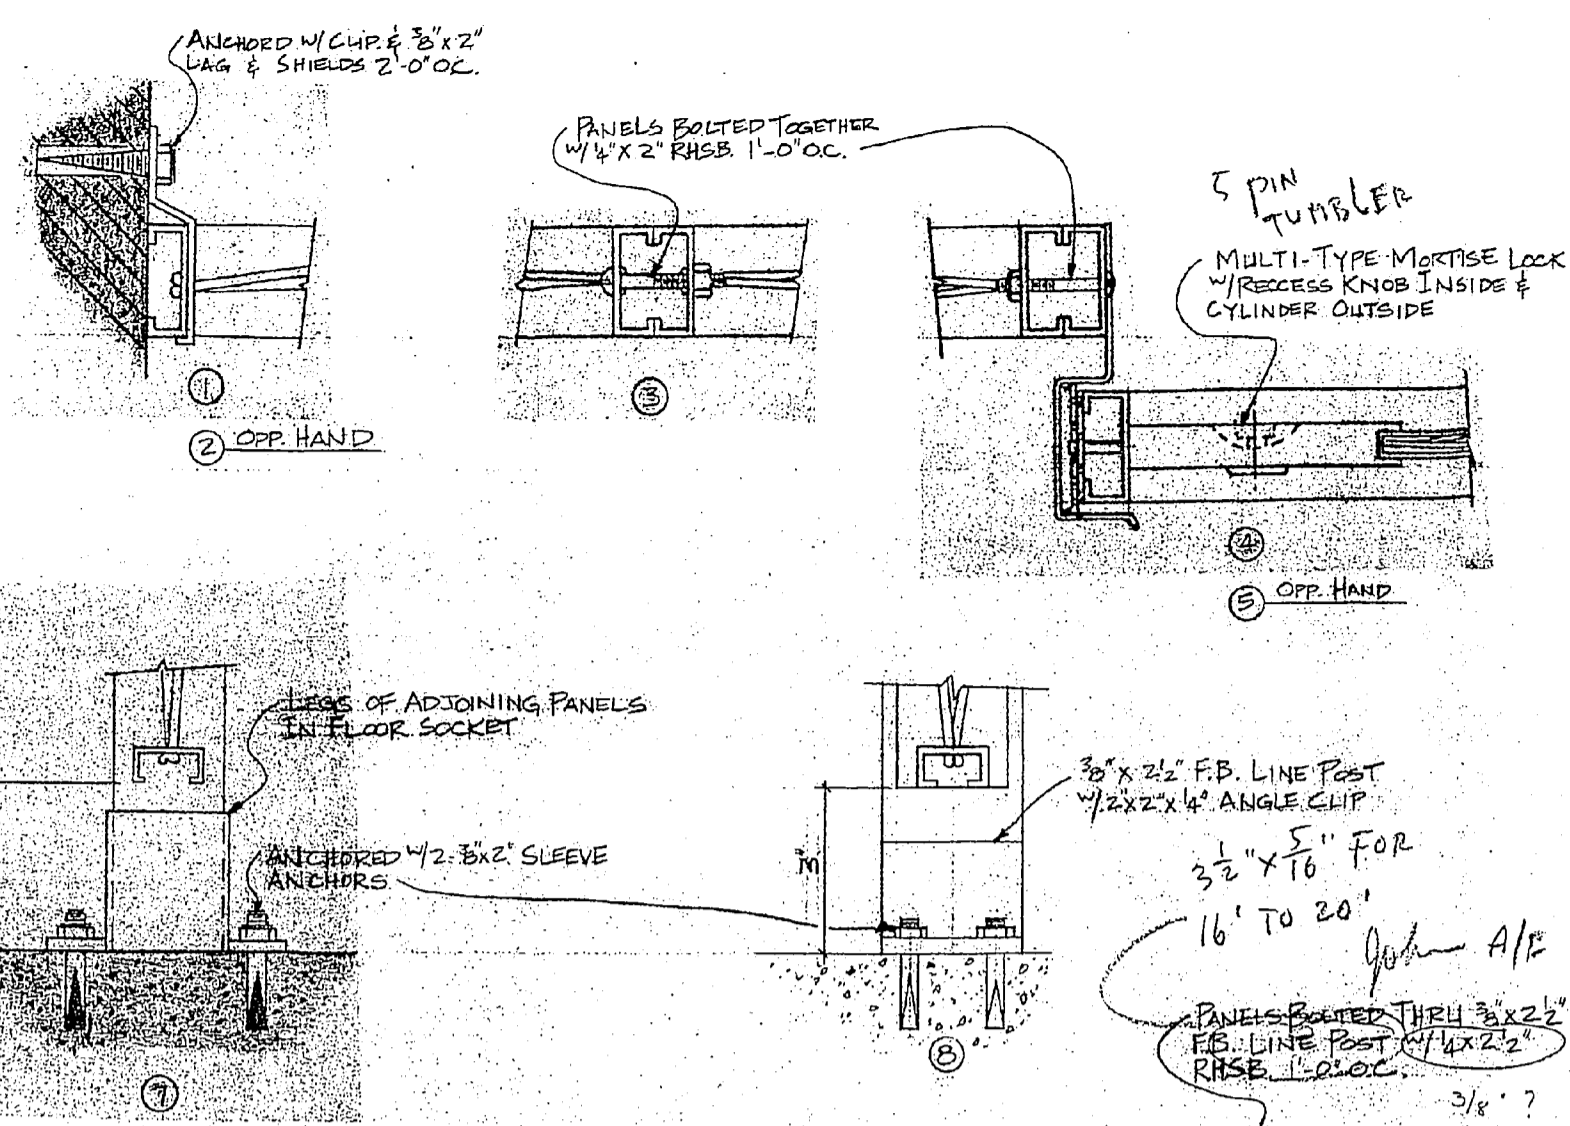 ANCHORD W/ CLIP & 3/8" X 2"
LAG & SHIELDS 2'-0" O.C.
PANELS BOLTED TOGETHER
W/ 1/4" X 2" RHSB. 1'-0" O.C.
5 PIN
TUMBLER
MULTI-TYPE MORTISE LOCK
W/RECCESS KNOB INSIDE &
CYLINDER OUTSIDE
1
2 OPP. HAND
3
4
5 OPP. HAND
LEGS OF ADJOINING PANELS
IN FLOOR SOCKET
ANCHORED W/2-3/8"X2" SLEEVE
ANCHORS
7
3/8" X 2 1/2" F.B. LINE POST
W/2"X2"X1/4" ANGLE CLIP
3"
8
3 1/2" X 5/16" FOR
16' TO 20'
John A/E
PANELS BOLTED THRU 3/8"X2 1/2"
F.B. LINE POST W/ 1/4X2 1/2"
RHSB. 1'-0" O.C.
3/8" ?